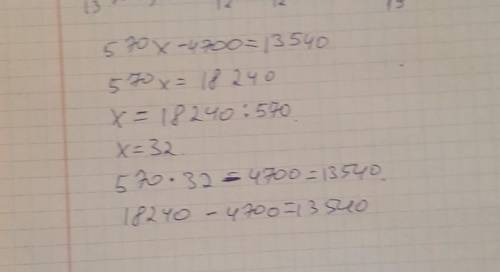 570x-4700=13540
570x=18240
x=18240:570.
x=32
570·32-4700=13540.
18240-4700=13540